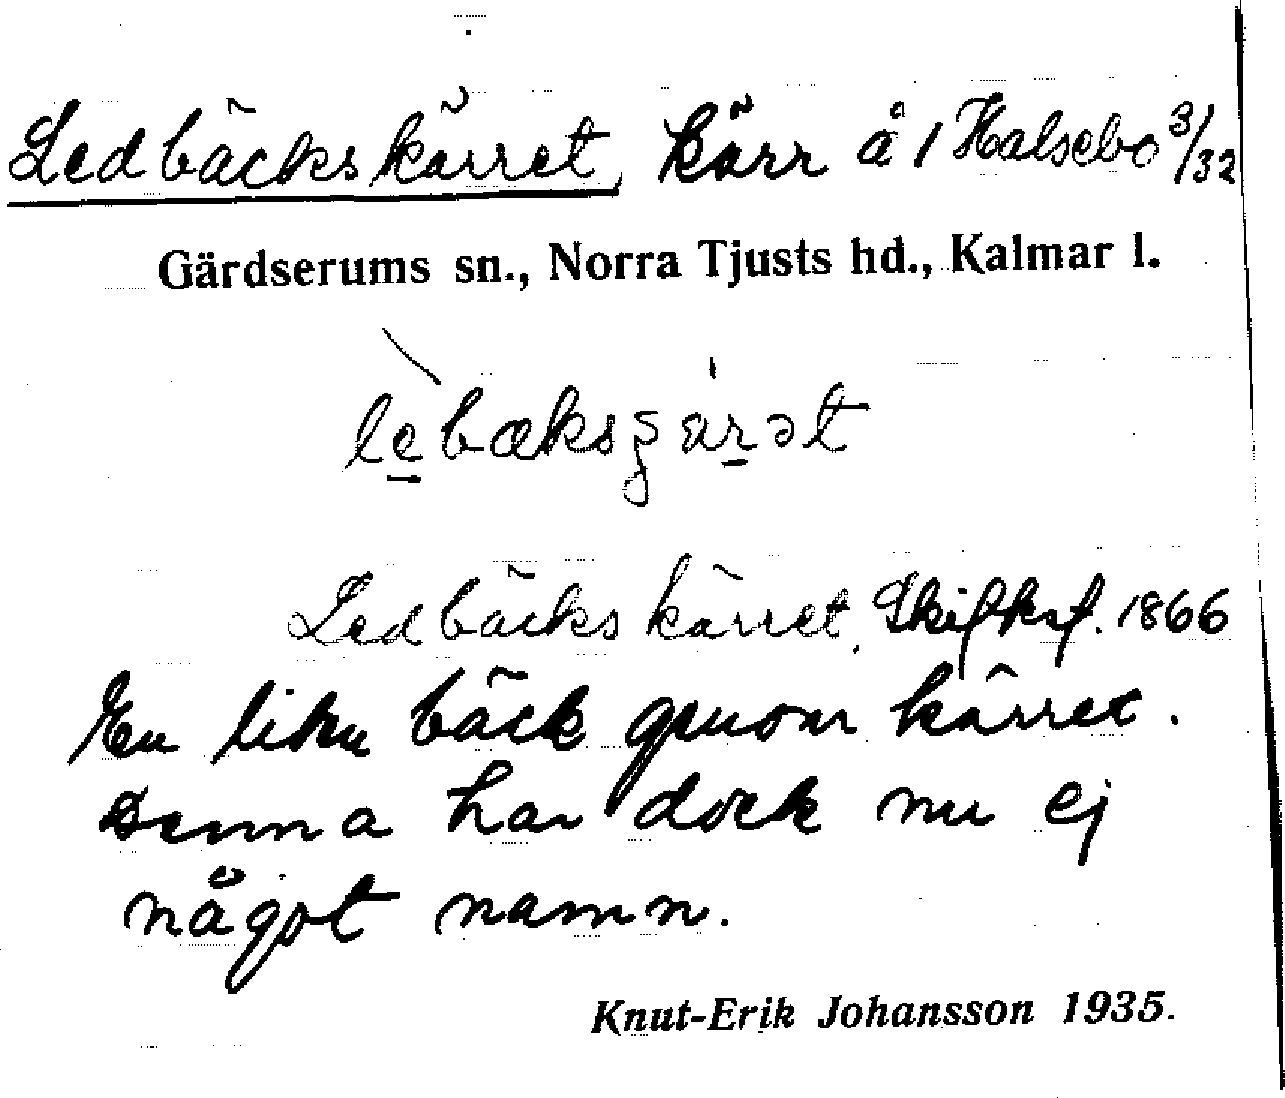 Ledbäckskärret, kärr å 1 Halsebo 3/32
Gärdserums sn., Norra Tjusts hd., Kalmar l.
Ledbäckskärret, Skifksf. 1866
En liten bäck genom kärret.
Denna har dock nu ej
något namn.
Knut-Erik Johansson 1935.